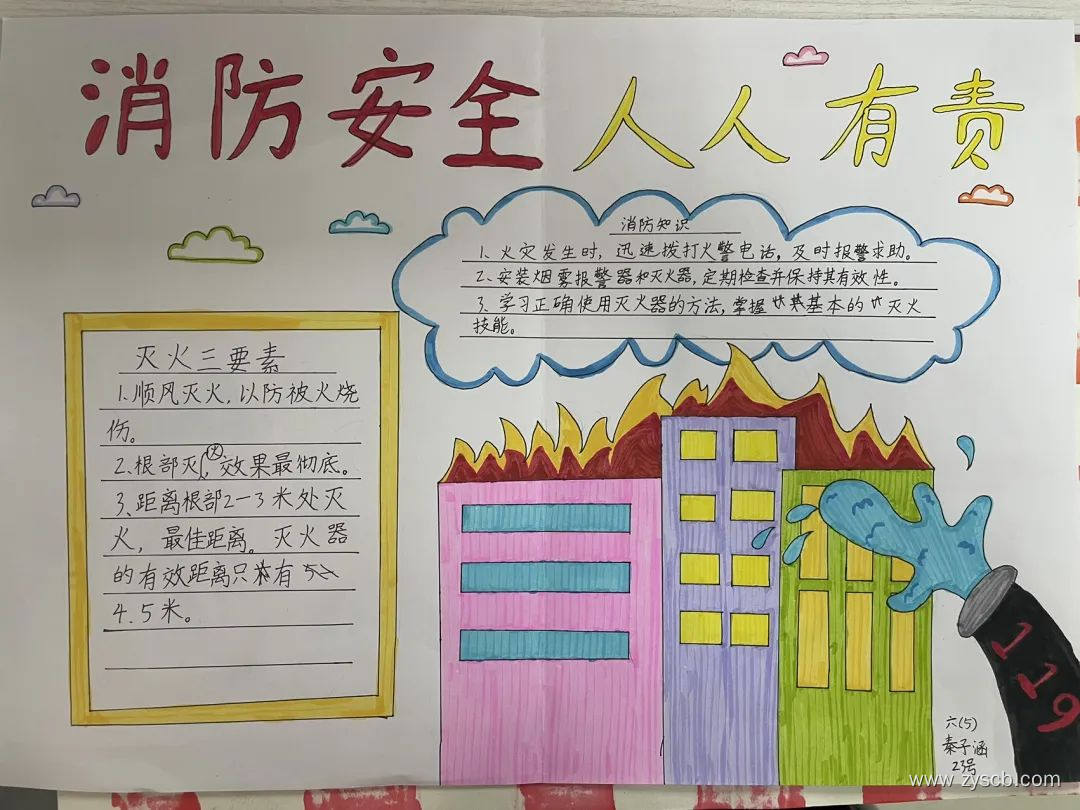 消防安全 人人有责
消防知识
1、火灾发生时，迅速拨打火警电话，及时报警求助。
2、安装烟雾报警器和灭火器，定期检查并保持其有效性。
3、学习正确使用灭火器的方法，掌握基本的灭火
技能。
灭火三要素
1.顺风灭火，以防被火烧
伤。
2.根部灭火，效果最彻底。
3、距离根部2-3米处灭
火，最佳距离。灭火器
的有效距离只有
4.5米。
119
六(5)
秦子涵
23号
www.zyscbl.com